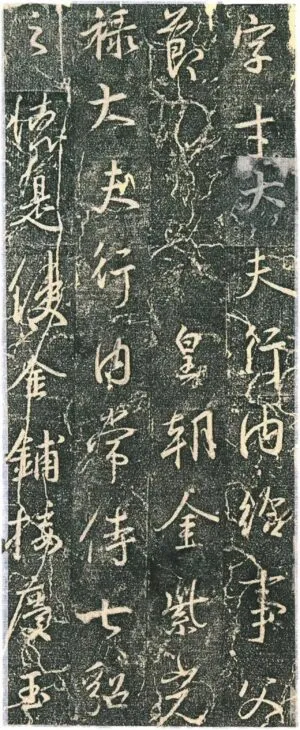 字才大夫行内給事父
節皇朝金紫光
祿大夫行内常侍七貂
之是使金鋪接慶玉